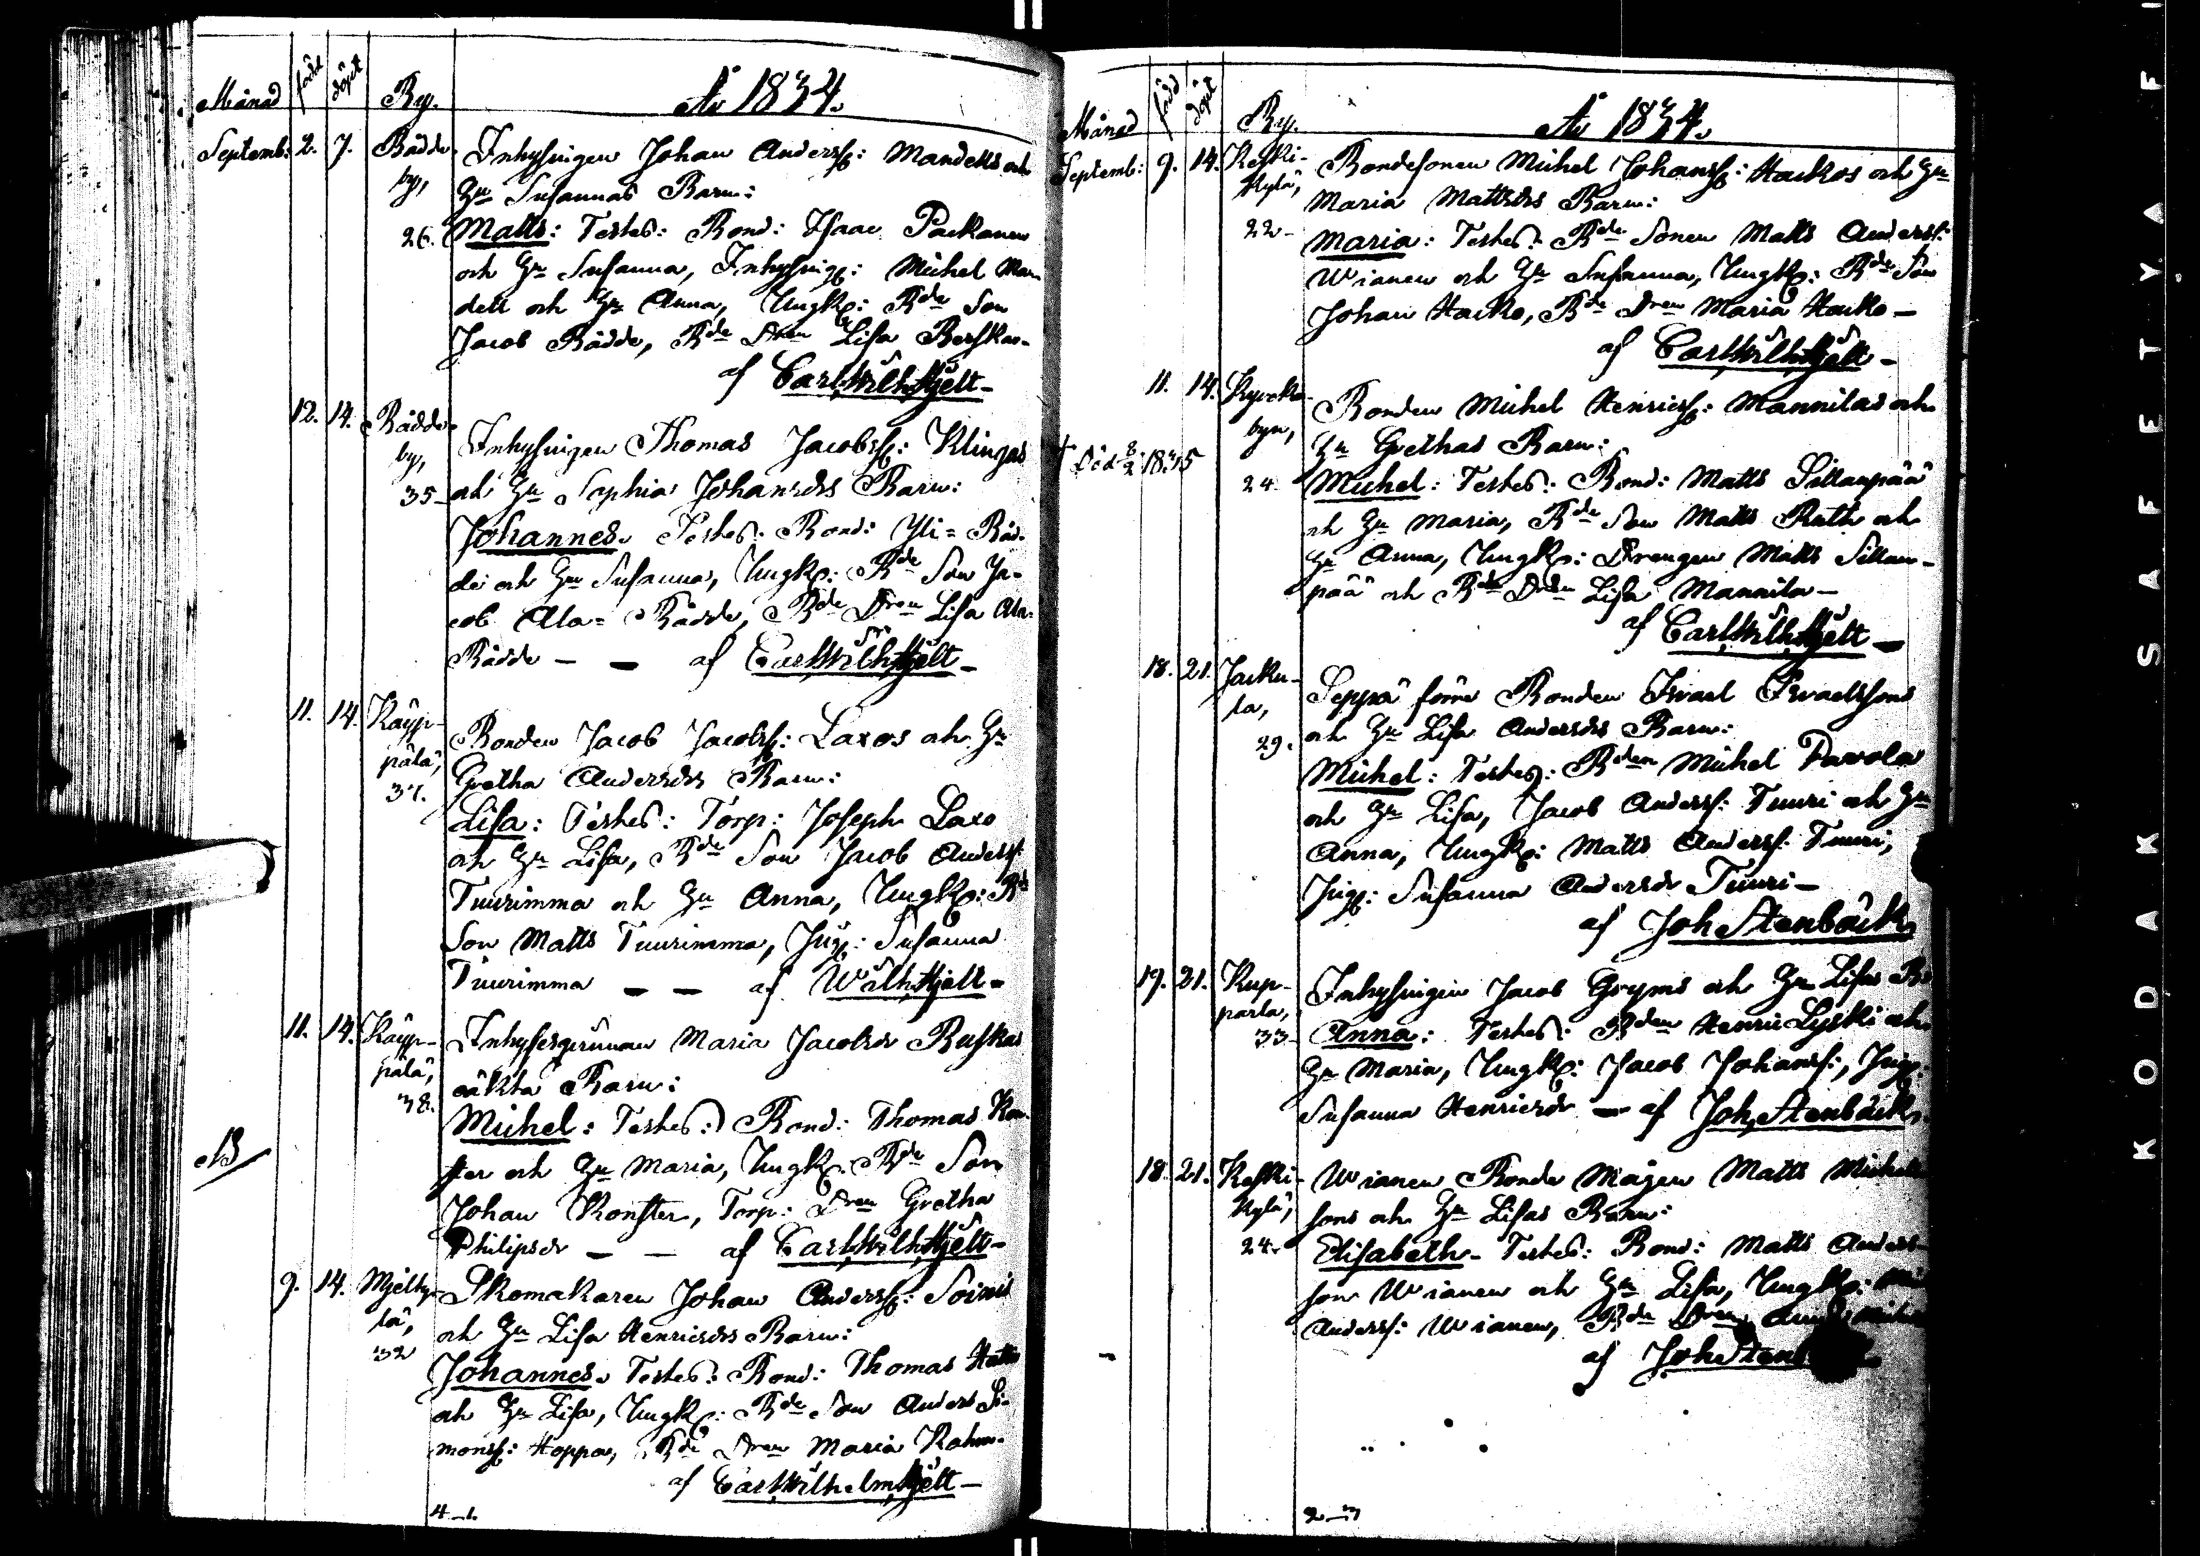 Månad född döpt By. År 1834.
Septemb: 2. 7. Rådde- Inhysingen Johan Anderss: Mandells och
by, Hu Susannas Barn:
26. Matts: Testes: Bond: Isaac Packanen
och Hu Susanna, Inhysing: Michel Man-
dell och Hu Anna, Ungk: Bde Son
Jacob Rådde, Bde Dren Lisa
af Carl Wilh Hjelt
12. 14. Rådde-
by, Inhysingen Thomas Jacobss: Klingas
35 och Hu Sophia Johansdrs Barn:
Johannes. Testes: Bond: Yli=Råd-
de och Hu Susanna, Ungk: Bde Son Ja-
cob Ala=Rådde, Bde Dren Lisa Ala-
Rådde — — af Carl Wilh Hjelt
11. 14. Käyp-
pälä, Bonden Jacob Jacobss: Laxos och Hu
37. Gretha Andersdrs Barn:
Lisa: Testes: Torp: Joseph Laxo
och Hu Lisa, Bde Son Jacob Anderss:
Tuurimma och Hu Anna, Ungk: Bde
Son Matts Tuurimma, Pig: Susanna
Tuurimma — — af Wilh Hjelt
11. 14. Käyp- Inhysesqvinnan Maria Jacobsdr Ruskas
pälä, oäkta Barn:
38. Michel: Testes: Bond: Thomas Kon-
B ster och Hu Maria, Ungk: Bde Son
Johan Konster, Torp: Dren Gretha
Philipsdr — — af Carl Wilh Hjelt
9. 14. Mjölby- Skomakaren Johan Anderss: Soinis
lä, och Hu Lisa Henricsdrs Barn:
32 Johannes. Testes: Bond: Thomas
och Hu Lisa, Ungk: Bde Son Anders Si-
monss: Hoppa, Bde Dren Maria
af Carl Wilhelm Hjelt
Månad född döpt By. År 1834.
Septemb: 9. 14. Keski- Bondesonen Michel Johanss: Haikos och Hu
kylä, Maria Mattsdrs Barn:
22 Maria: Testes: Bde Sonen Matts Anderss:
Wianen och Hu Susanna, Ungk: Bde Son
Johan Haiko, Bde Dren Maria Haiko
af Carl Wilh Hjelt
11. 14. Kyrcko- Bonden Michel Henricss: Mannilas och
byn, Hu Grethas Barn:
† Död 8/2 1835
24 Michel: Testes: Bond: Matts Sillanpää
och Hu Maria, Bde Son Matts Ruth och
Hu Anna, Ungk: Drengen Matts Sillan-
pää och Bde Dren Lisa Mannila
af Carl Wilh Hjelt
18. 21. Jacku- Seppä förre Bonden Israel Israelssons
la, och Hu Lisa Andersdrs Barn:
29. Michel: Testes: Bden Michel Pavola
och Hu Lisa, Jacob Anderss: Tuuri och Hu
Anna, Ungk: Matts Anderss: Tuuri,
Pig: Susanna Andersdr Tuuri
af Joh Stenbäck
19. 21. Kup- Inhysingen Jacob Gryms och Hu Lisas
parla,
33 Anna: Testes: Bden Henric Lyski och
Hu Maria, Ungk: Jacob Johanss:, Pig:
Susanna Henricsdr — af Joh Stenbäck
18. 21. Keski- Wianen Bonde Mågen Matts Michels-
kylä, sons och Hu Lisas Barn:
24 Elisabeth. Testes: Bond: Matts Anders-
son Wianen och Hu Lisa, Ungk:
Anderss: Wianen, Bde Dren
af Joh Stenb
KODAK SAFETY